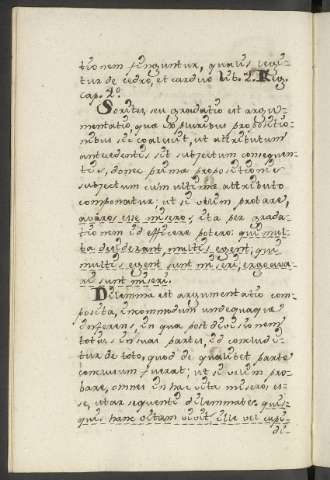 tionem finguntur, qualis legi-
tur de cedro, et carduo Lib. 2. Reg.
Cap. 2º.
Sorites, seu gradatio est argu-
mentatio, qua ex pluribus propositio-
nibus sic coalescit, ut attributum
antecedentis sit subjectum consequen-
tis, donec prima propositionis
subjectum cum ultima attributo
componatur; ut si velim probare,
avaros esse miseros, ita per grada-
tionem id efficere potero: qui mul-
ta desiderant, multis egent; qui
multis egent sunt miseri; ergo ava-
ri sunt miseri.
Dilemma est argumentatio com-
posita, incommodum undequaque
inferens, in qua post divisionem
totius in suas partes, id concludi-
tur de toto, quod de qualibet parte
conclusum fuerat; ut si velim pro-
bare, omnes in hac vita miseros es-
se, utar sequenti dilemmate: quis-
quis hanc vitam vivit, ille vel cupi-
di